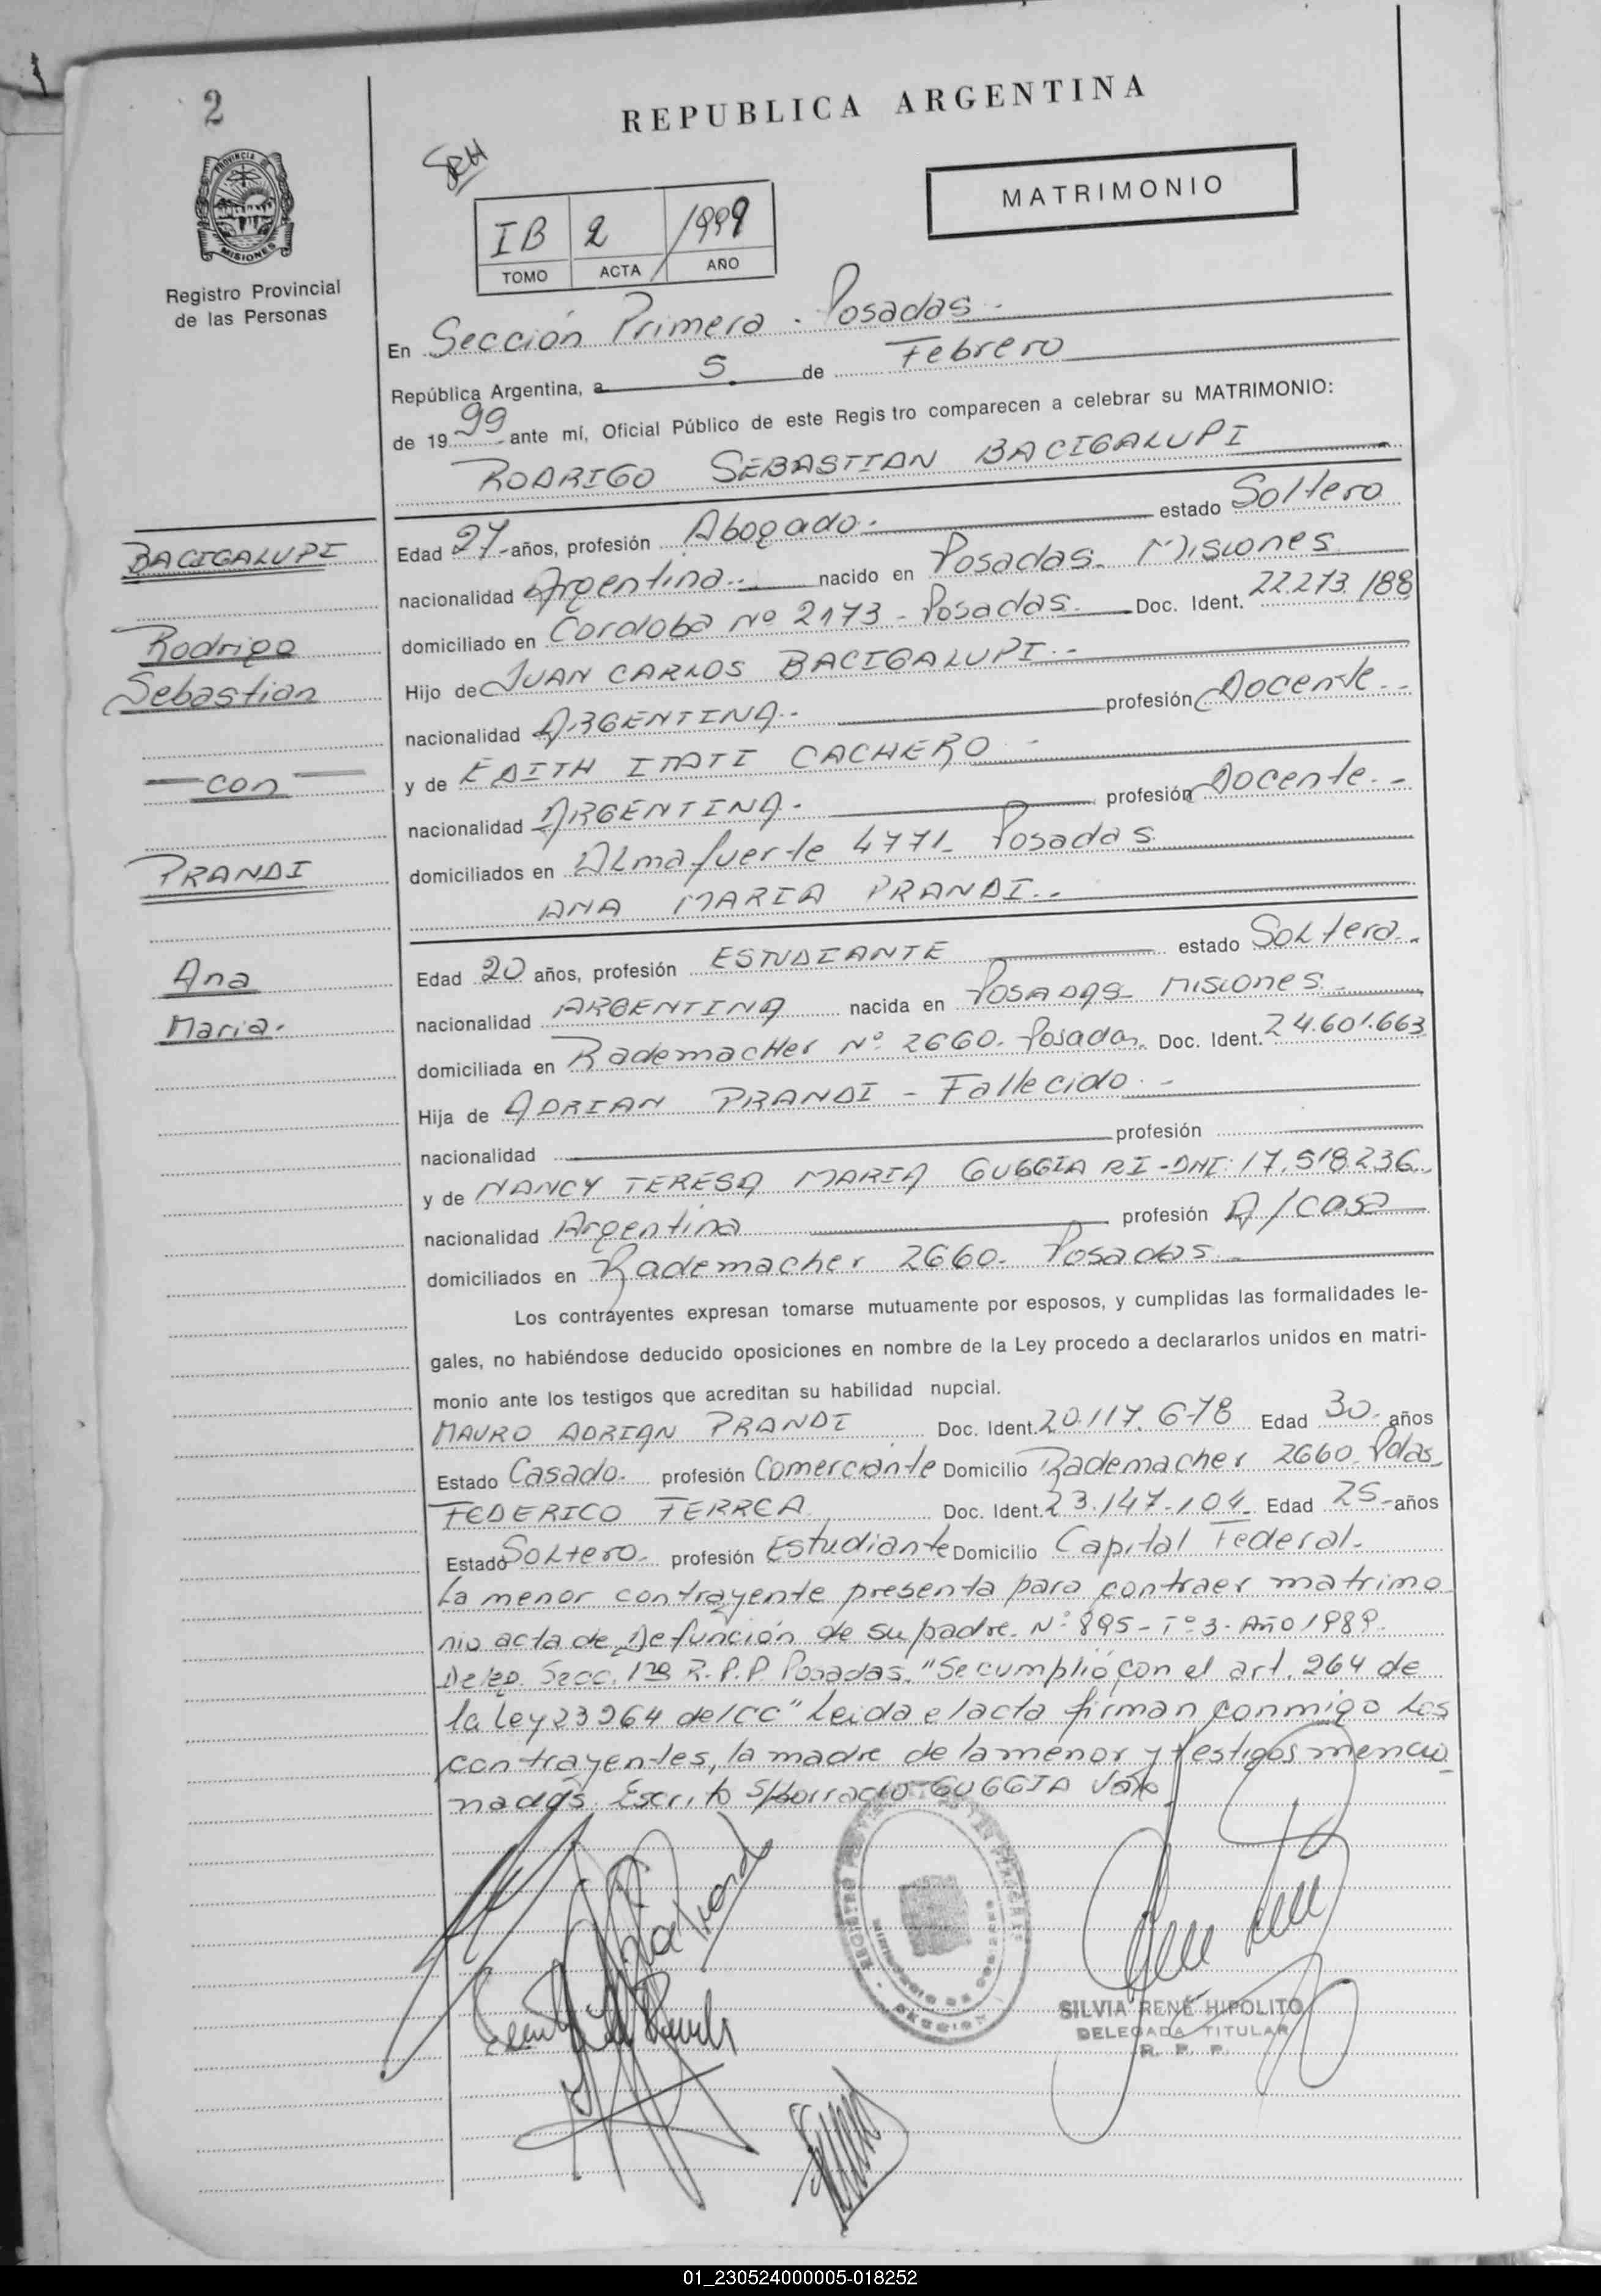 2
REPUBLICA ARGENTINA
SRH
MATRIMONIO
PROVINCIA
MISIONES
IB 2 1999
TOMO ACTA AÑO
Registro Provincial
de las Personas
En Sección Primera - Posadas.-
República Argentina, a 5. de Febrero
de 1999 ante mí, Oficial Público de este Regis tro comparecen a celebrar su MATRIMONIO:
RODRIGO SEBASTIAN BACIGALUPI
BACIGALUPI
Rodrigo
Sebastian
con
PRANDI
Ana
Maria.
Edad 27 años, profesión Abogado.- estado Soltero
nacionalidad Argentina.- nacido en Posadas. Misiones
domiciliado en Cordoba Nº 2173 - Posadas. Doc. Ident. 22.273.188
Hijo de JUAN CARLOS BACIGALUPI.-
nacionalidad ARGENTINA.- profesión Docente.-
y de EDITH ITATI CACHERO.-
nacionalidad ARGENTINA.- profesión Docente.-
domiciliados en ALmafuerte 4771- Posadas
ANA MARIA PRANDI.-
Edad 20 años, profesión ESTUDIANTE estado SoLtera.-
nacionalidad ARGENTINA nacida en POSADAS- MISIONES.
domiciliada en RademacHer Nº 2660. Posadas. Doc. Ident. 24.601.663
Hija de ADRIAN PRANDI - Fallecido.-
nacionalidad profesión
y de NANCY TERESA MARIA GUGGIA RI-DNI: 17.518236
nacionalidad Argentina profesión A/casa
domiciliados en Rademacher 2660. Posadas.
Los contrayentes expresan tomarse mutuamente por esposos, y cumplidas las formalidades le-
gales, no habiéndose deducido oposiciones en nombre de la Ley procedo a declararlos unidos en matri-
monio ante los testigos que acreditan su habilidad nupcial.
MAURO ADRIAN PRANDI Doc. Ident. 20.117.678 Edad 30. años
Estado Casado. profesión Comerciante Domicilio Rademacher 2660. Pdas.
FEDERICO FERREA Doc. Ident. 23.147.104. Edad 25- años
Estado SoLtero. profesión Estudiante Domicilio Capital Federal.
La menor contrayente presenta para contraer matrimo
nio acta de Defunción de su padre. Nº 895- Tº 3- Año 1989.
Deleg. Secc. 1ra R.P.P. Posadas. "Se cumplió con el art. 264 de
la Ley 23264 del CC" Leida el acta firman conmigo Los
contrayentes, la madre de la menor y testigos mencio_
nados. Escrito S/borrado GUGGIA Vale.
SILVIA RENÉ HIPOLITO
DELEGADA TITULAR
R. P. P.
01_230524000005-018252